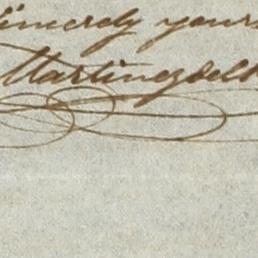 Sincerely yours
Martinezdelh